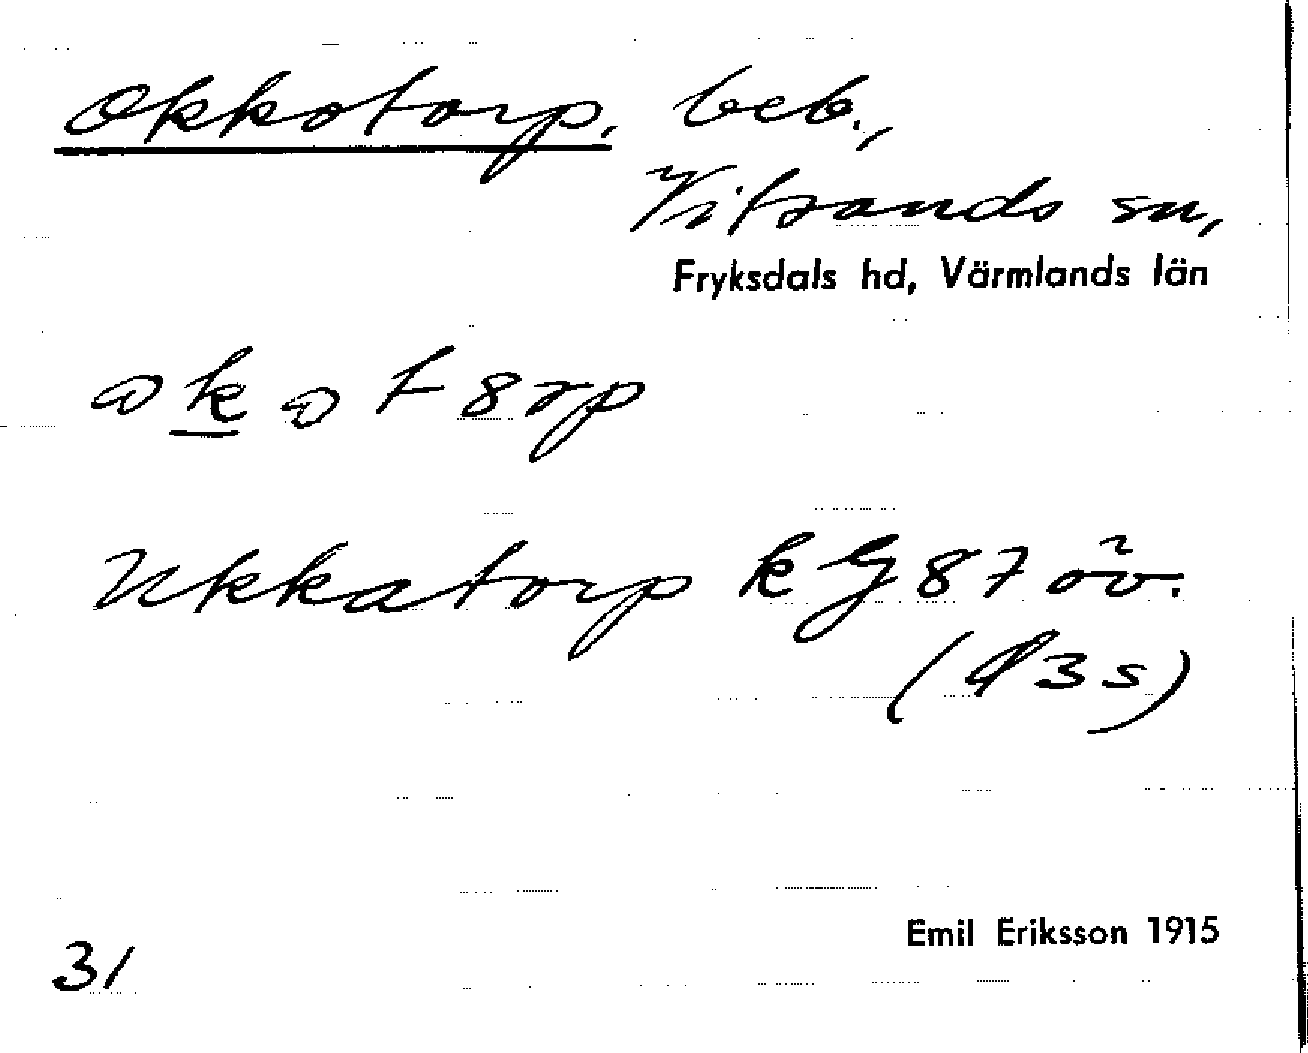 Okkotorp, beb.,
Vitsands sn,
Fryksdals hd, Värmlands län
Ukkatorp kG 87 öv.
(d3s)
Emil Eriksson 1915
31